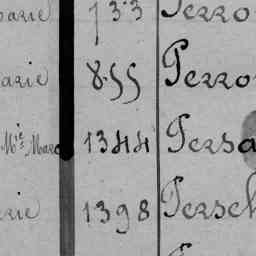 arie 733 Perro
arie 855 Perro
Mie Marc 1344 Persa
rie 1398 Persch